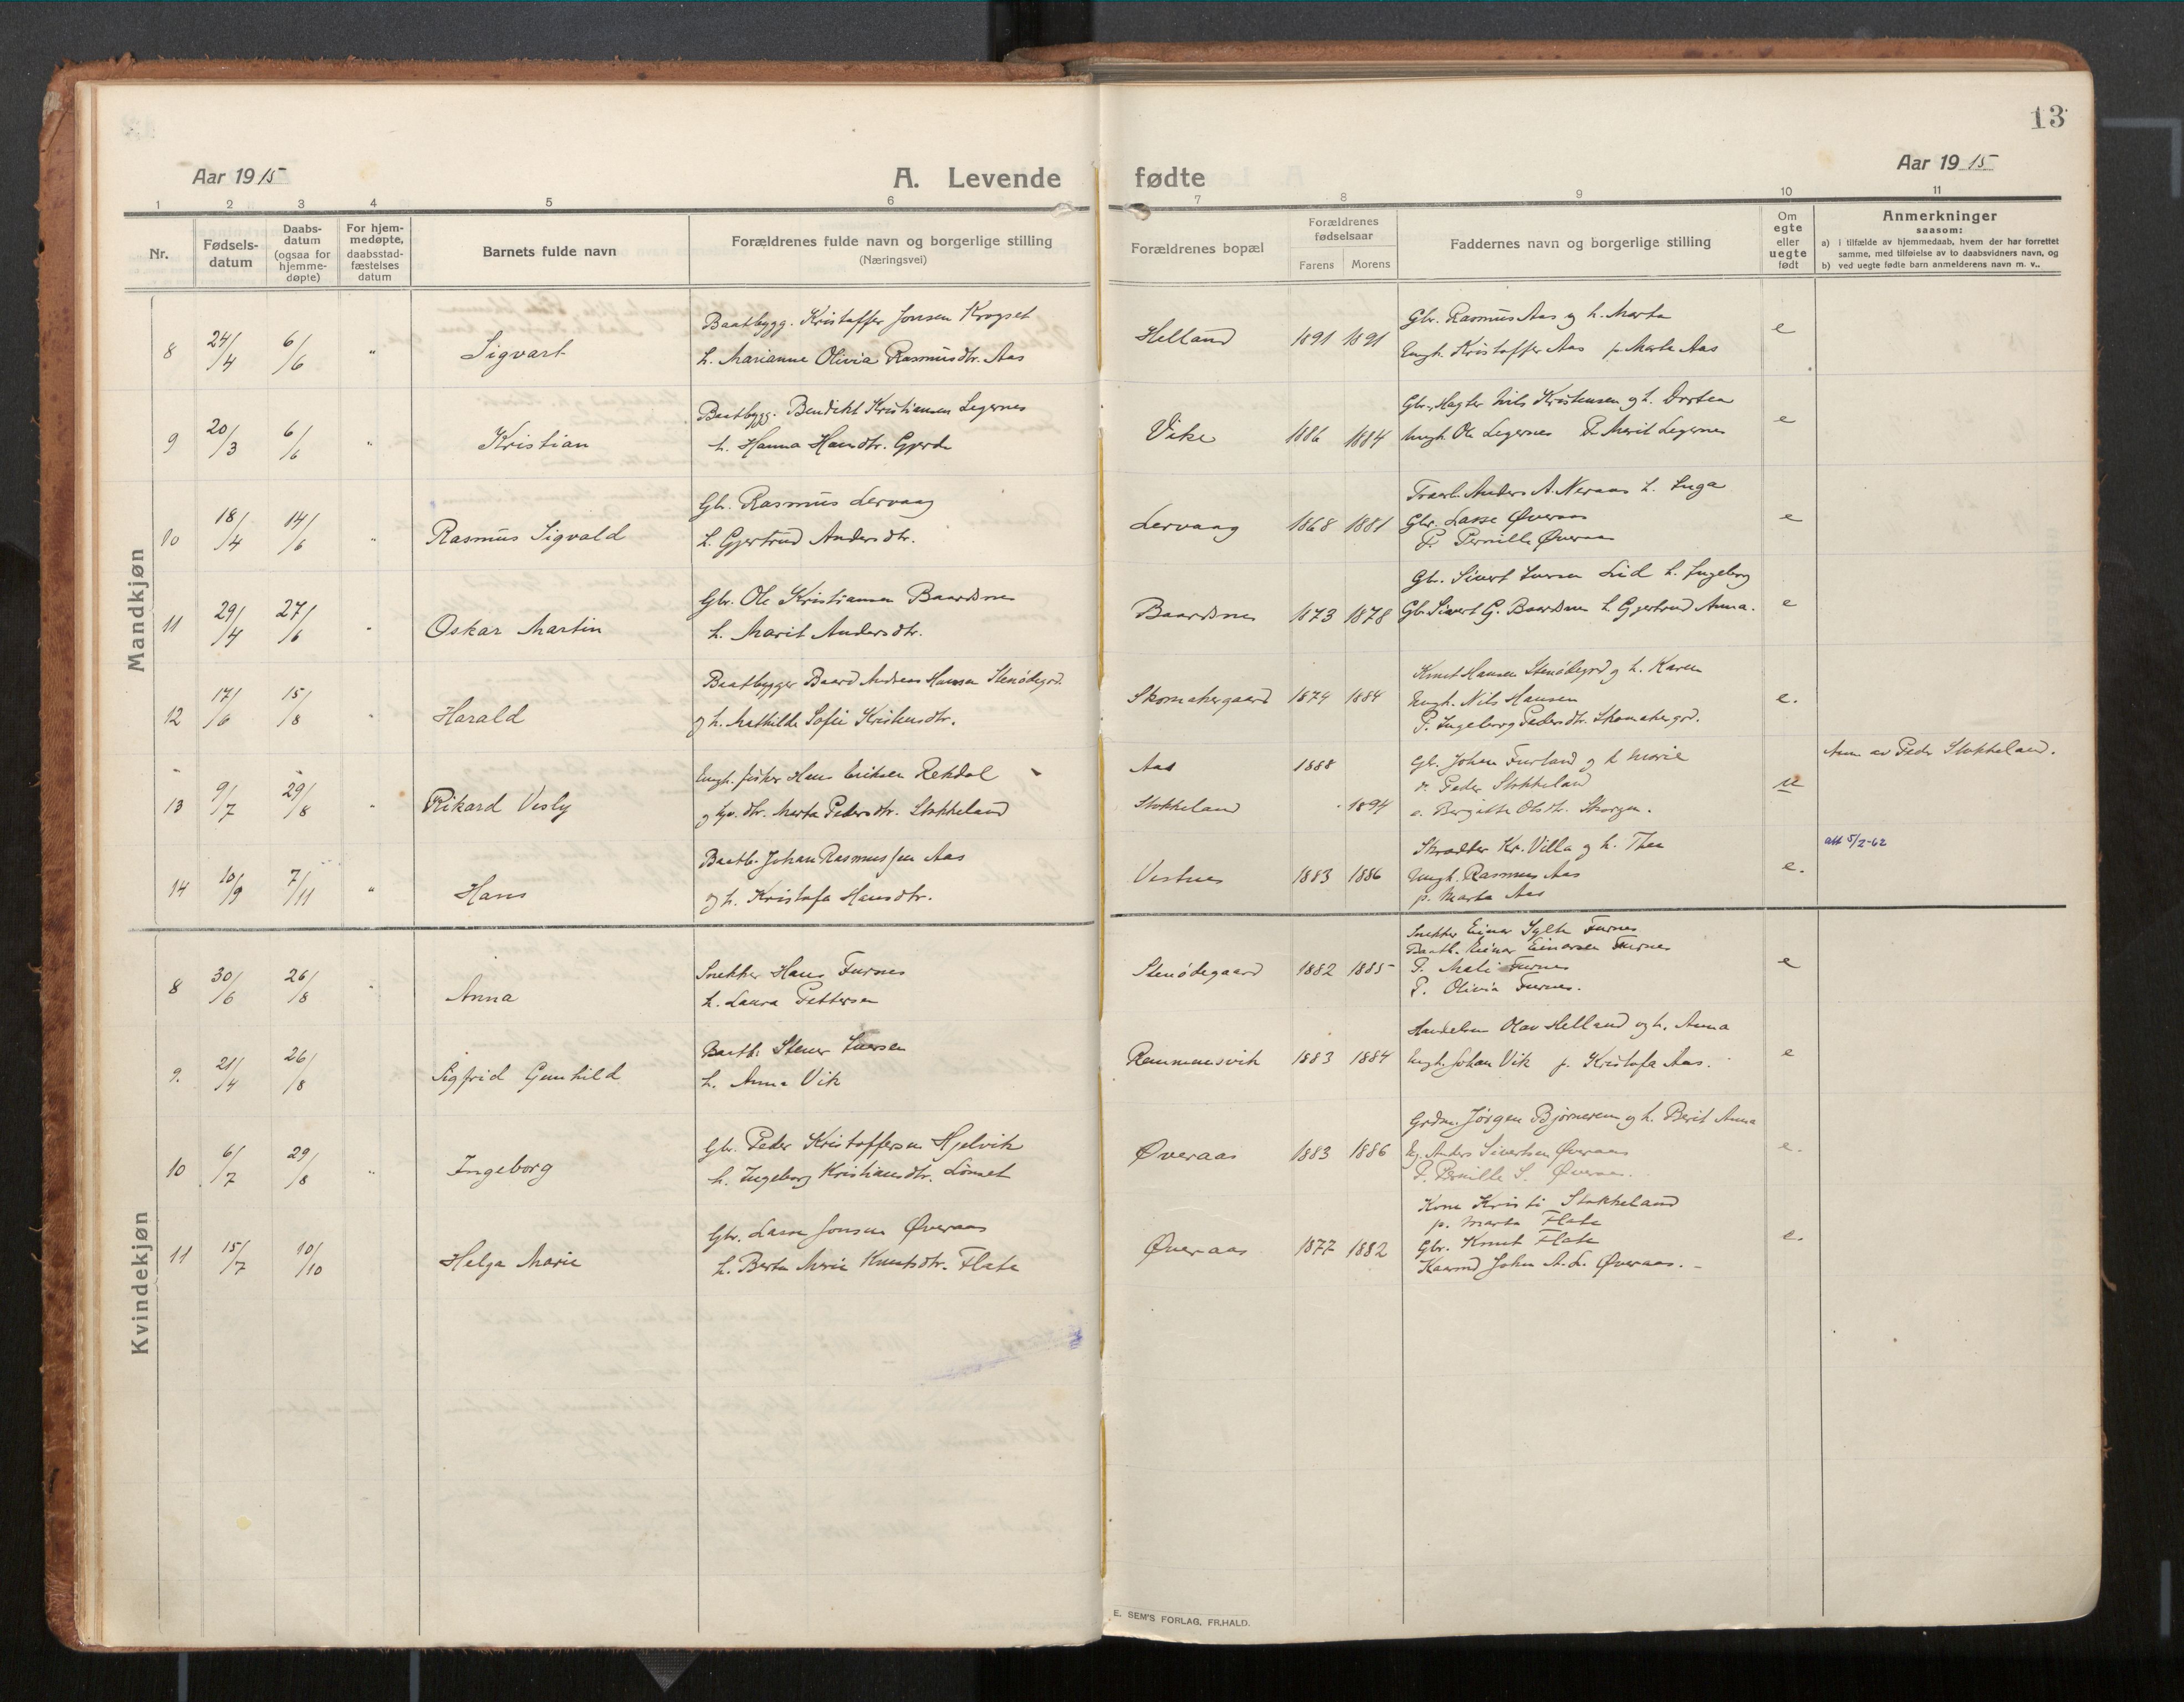 13
Aar 1915
A. Levende fødte
Aar 1915
1 2 3 4 5 6 7 8 9 10 11
Nr.
Fødsels-
datum
Daabs-
datum
(ogsaa for
hjemme-
døpte)
For hjem-
medøpte,
daabsstad-
fæstelses
datum
Barnets fulde navn
Forældrenes fulde navn og borgerlige stilling
(Næringsvei)
Forældrenes bopæl
Forældrenes
fødselsaar
Farens Morens
Faddernes navn og borgerlige stilling
Om
egte
eller
uegte
født
Anmerkninger
saasom:
a) i tilfælde av hjemmedaab, hvem der har forrettet
samme, med tilføielse av to daabsvidners navn, og
b) ved uegte fødte barn anmelderens navn m. v..
Mandkjøn
8 24/4 6/6 " Sigvart
Baatbygg. Kristoffer Jonsen Krogset
h. Marianne Olivia Rasmusdtr. Aas
Helland 1891 1891
Gbr. Rasmus Aas og h. Marta
Ungk. Kristoffer Aas p. Marta Aas
e
9 20/3 6/6 " Kristian
Baatbygg. Bendikt Kristiansen Legernes
h. Hanna Hansdtr. Gjerde
Vike 1886 1884
Nils Kristensen og h. Dortea
Ungk. Ole Legernes P. Marit Legernes
e
10 18/4 14/6 " Rasmus Sigvald
Gbr. Rasmus Lervaag
h. Gjertrud Andersdtr.
Lervaag 1868 1881
Anders A. Neraas h. Inga
Gbr. Lasse Øveraas
P. Pernille Øveraas
e
11 29/4 27/6 " Oskar Martin
Gbr. Ole Kristiansen Baardsnes
h. Marit Andersdtr.
Baardsnes 1873 1878
Gbr. Sivert Iversen Lid h. Ingeborg
Gbr. Sivert G. Baardsnes h. Gjertrud Anna.
e
12 17/6 15/8 " Harald
Baatbygger Baard Andreas Hansen Stenødegrd.
og h. Mathilde Sofie Kristensdtr.
Skomakergaard 1874 1884
Knut Hansen Stenødegrd og h. Karen
Ungk. Nils Hansen
P. Ingeborg Pedersdtr. Skomakergrd.
e.
13 9/7 29/8 " Rikard Vesly
Ungk. fisker Hans Eriksen Rekdal
og dtr. Marta Pedersdtr. Stokkeland
Aas 1888
Stokkeland 1894
Gbr. Johan Furland og h Marie
Peder Stokkeland
Bergitte Olsdt. Skorgen.
u
Anm av Peder Stokkeland.
14 10/9 7/11 " Hans
Baatb. Johan Rasmussen Aas
og h. Kristofa Hansdtr.
Vestnes 1883 1886
Skrædder Kr. Villa og h. Thea
Ungk. Rasmus Aas
p. Marta Aas
e.
att 5/2-62
Kvindekjøn
8 30/6 26/8 " Anna
Snekker Hans Furnes
h. Laura Pettersen
Stenødegaard 1882 1885
Snekker Einar Sylte Furnes
Baatb. Einar Einarsen Furnes
P. Mali Furnes
P. Olivia Furnes.
e
9. 21/4 26/8 Sigfrid Gunhild
Baatb. Stener Iversen
h. Anna Vik
Remmemsvik 1883 1884
Handelsm Olav Helland og h. Anna
Ungk. Johan Vik p. Kristofa Aas.
e
10 6/7 29/8 " Ingeborg
Gbr. Peder Kristoffersen Hjelvik
h. Ingeborg Kristiansdtr. Lønset
Øveraas 1883 1886
Grdm Jørgen Bjørnerem og h. Berit Anna
Ug. Anders Sivertsen Øveraas
P. Pernille S. Øveraas.
e.
11 15/7 10/10 Helga Marie
Gbr. Lasse Jonsen Øveraas
h. Berte Marie Knutsdtr. Flate
Øveraas 1877 1882
Kone Kristi Stokkeland
p. Marta Flate
Gbr. Knut Flate
Kaarmd John A. L. Øveraas. -
e.
E. SEM'S FORLAG, FR.HALD.